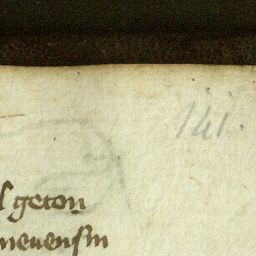 141.
geton
meuensm